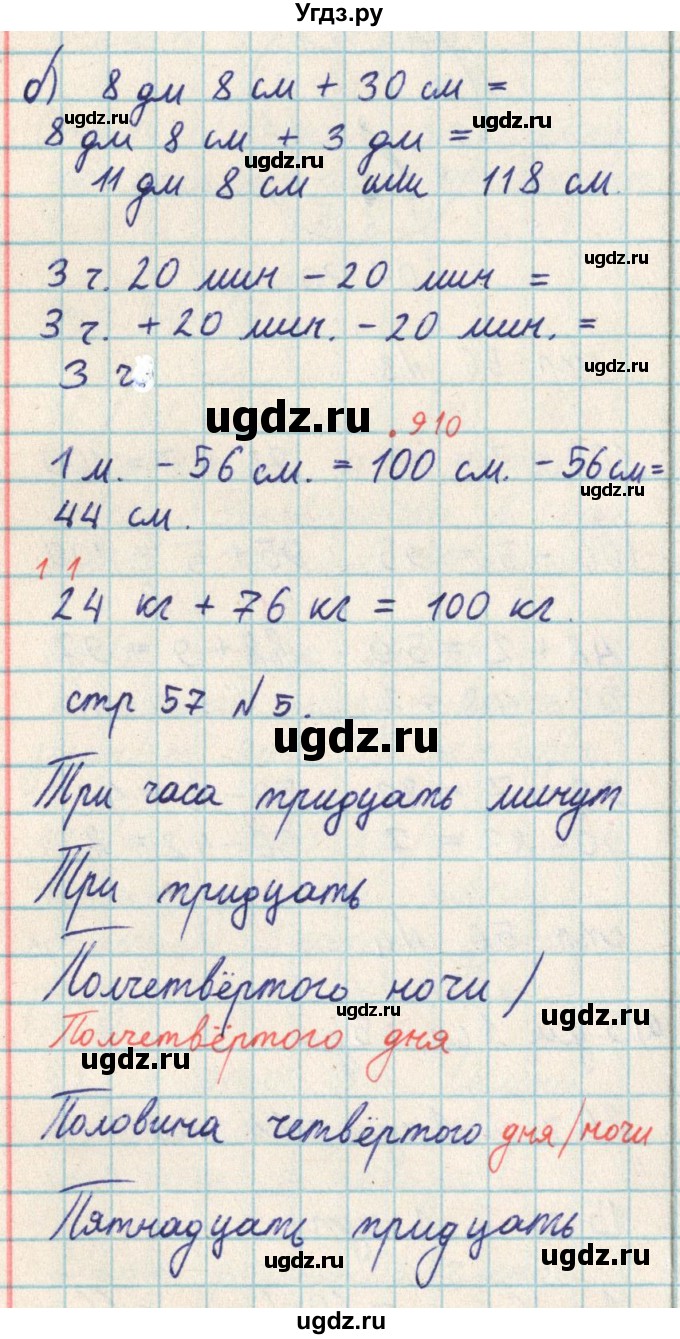 Угдз.ру
б) 8 дм 8 см + 30 см =
ugdz.ru ugdz.ru
8 дм 8 см + 3 дм =
ugdz.ru
11 дм 8 см или 118 см.
ugdz.ru
3 ч. 20 мин - 20 мин =
3 ч. + 20 мин. - 20 мин. =
ugdz.ru
3 ч.
ugdz.ru
. 9 10
1 м. - 56 см. = 100 см. - 56 см =
ugdz.ru
44 см.
1 1
24 кг + 76 кг = 100 кг.
стр 57 № 5.
ugdz.ru
Три часа тридцать минут
Три тридцать
Полчетвёртого ночи /
ugdz.ru ugdz.ru
Полчетвёртого дня
ugdz.ru
Половина четвёртого дня/ночи
Пятнадцать тридцать
ugdz.ru ugdz.ru
ugdz.ru